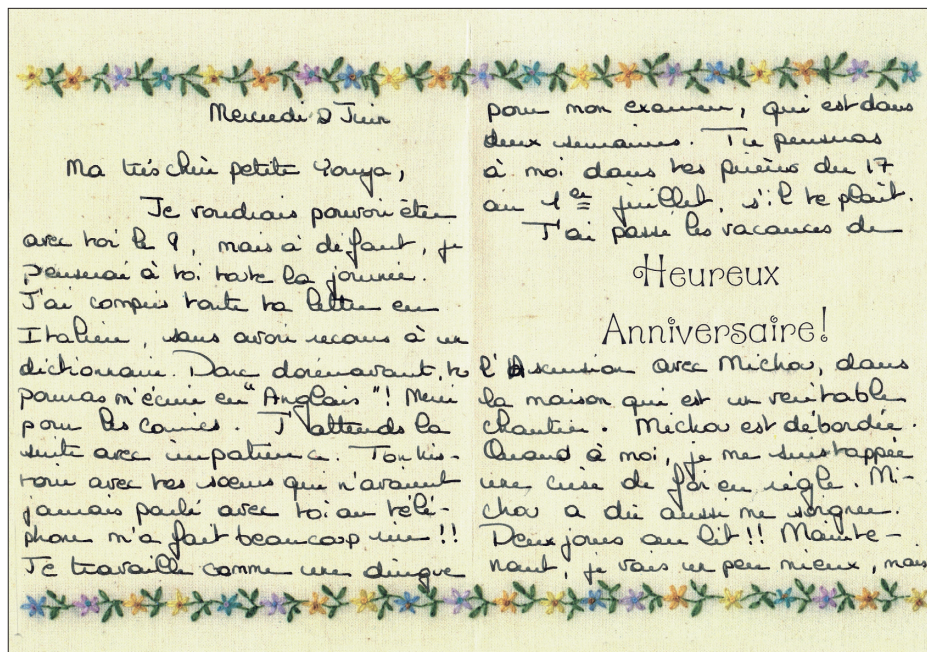 Mercredi 2 Juin
Ma très chère petite Youya,
Je voudrais pouvoir être
avec toi le 9, mais à défaut, je
penserai à toi toute la journée.
J'ai compris toute ta lettre en
Italien, sans avoir recours à un
dictionnaire. Donc dorénavant, tu
pourras m'écrire en "Anglais"! Merci
pour les
J'attends la
suite avec impatience. Ton his-
toire avec tes sœurs qui n'avaient
jamais parlé avec toi au télé-
phone m'a fait beaucoup rire!!
Je travaille comme une dingue
pour mon examen, qui est dans
deux semaines. Tu penseras
à moi dans tes prières du 17
au 1er juillet, s'il te plaît.
J'ai passé les vacances de
Heureux
Anniversaire!
l'Ascension avec Michou, dans
la maison qui est un veritable
chantier. Michou est débordée.
Quand à moi, je me suis tappée
une crise de foi en règle. Mi-
chou a dû aussi me soigner.
Deux jours au lit!! Mainte-
nant, je vais un peu mieux, mais